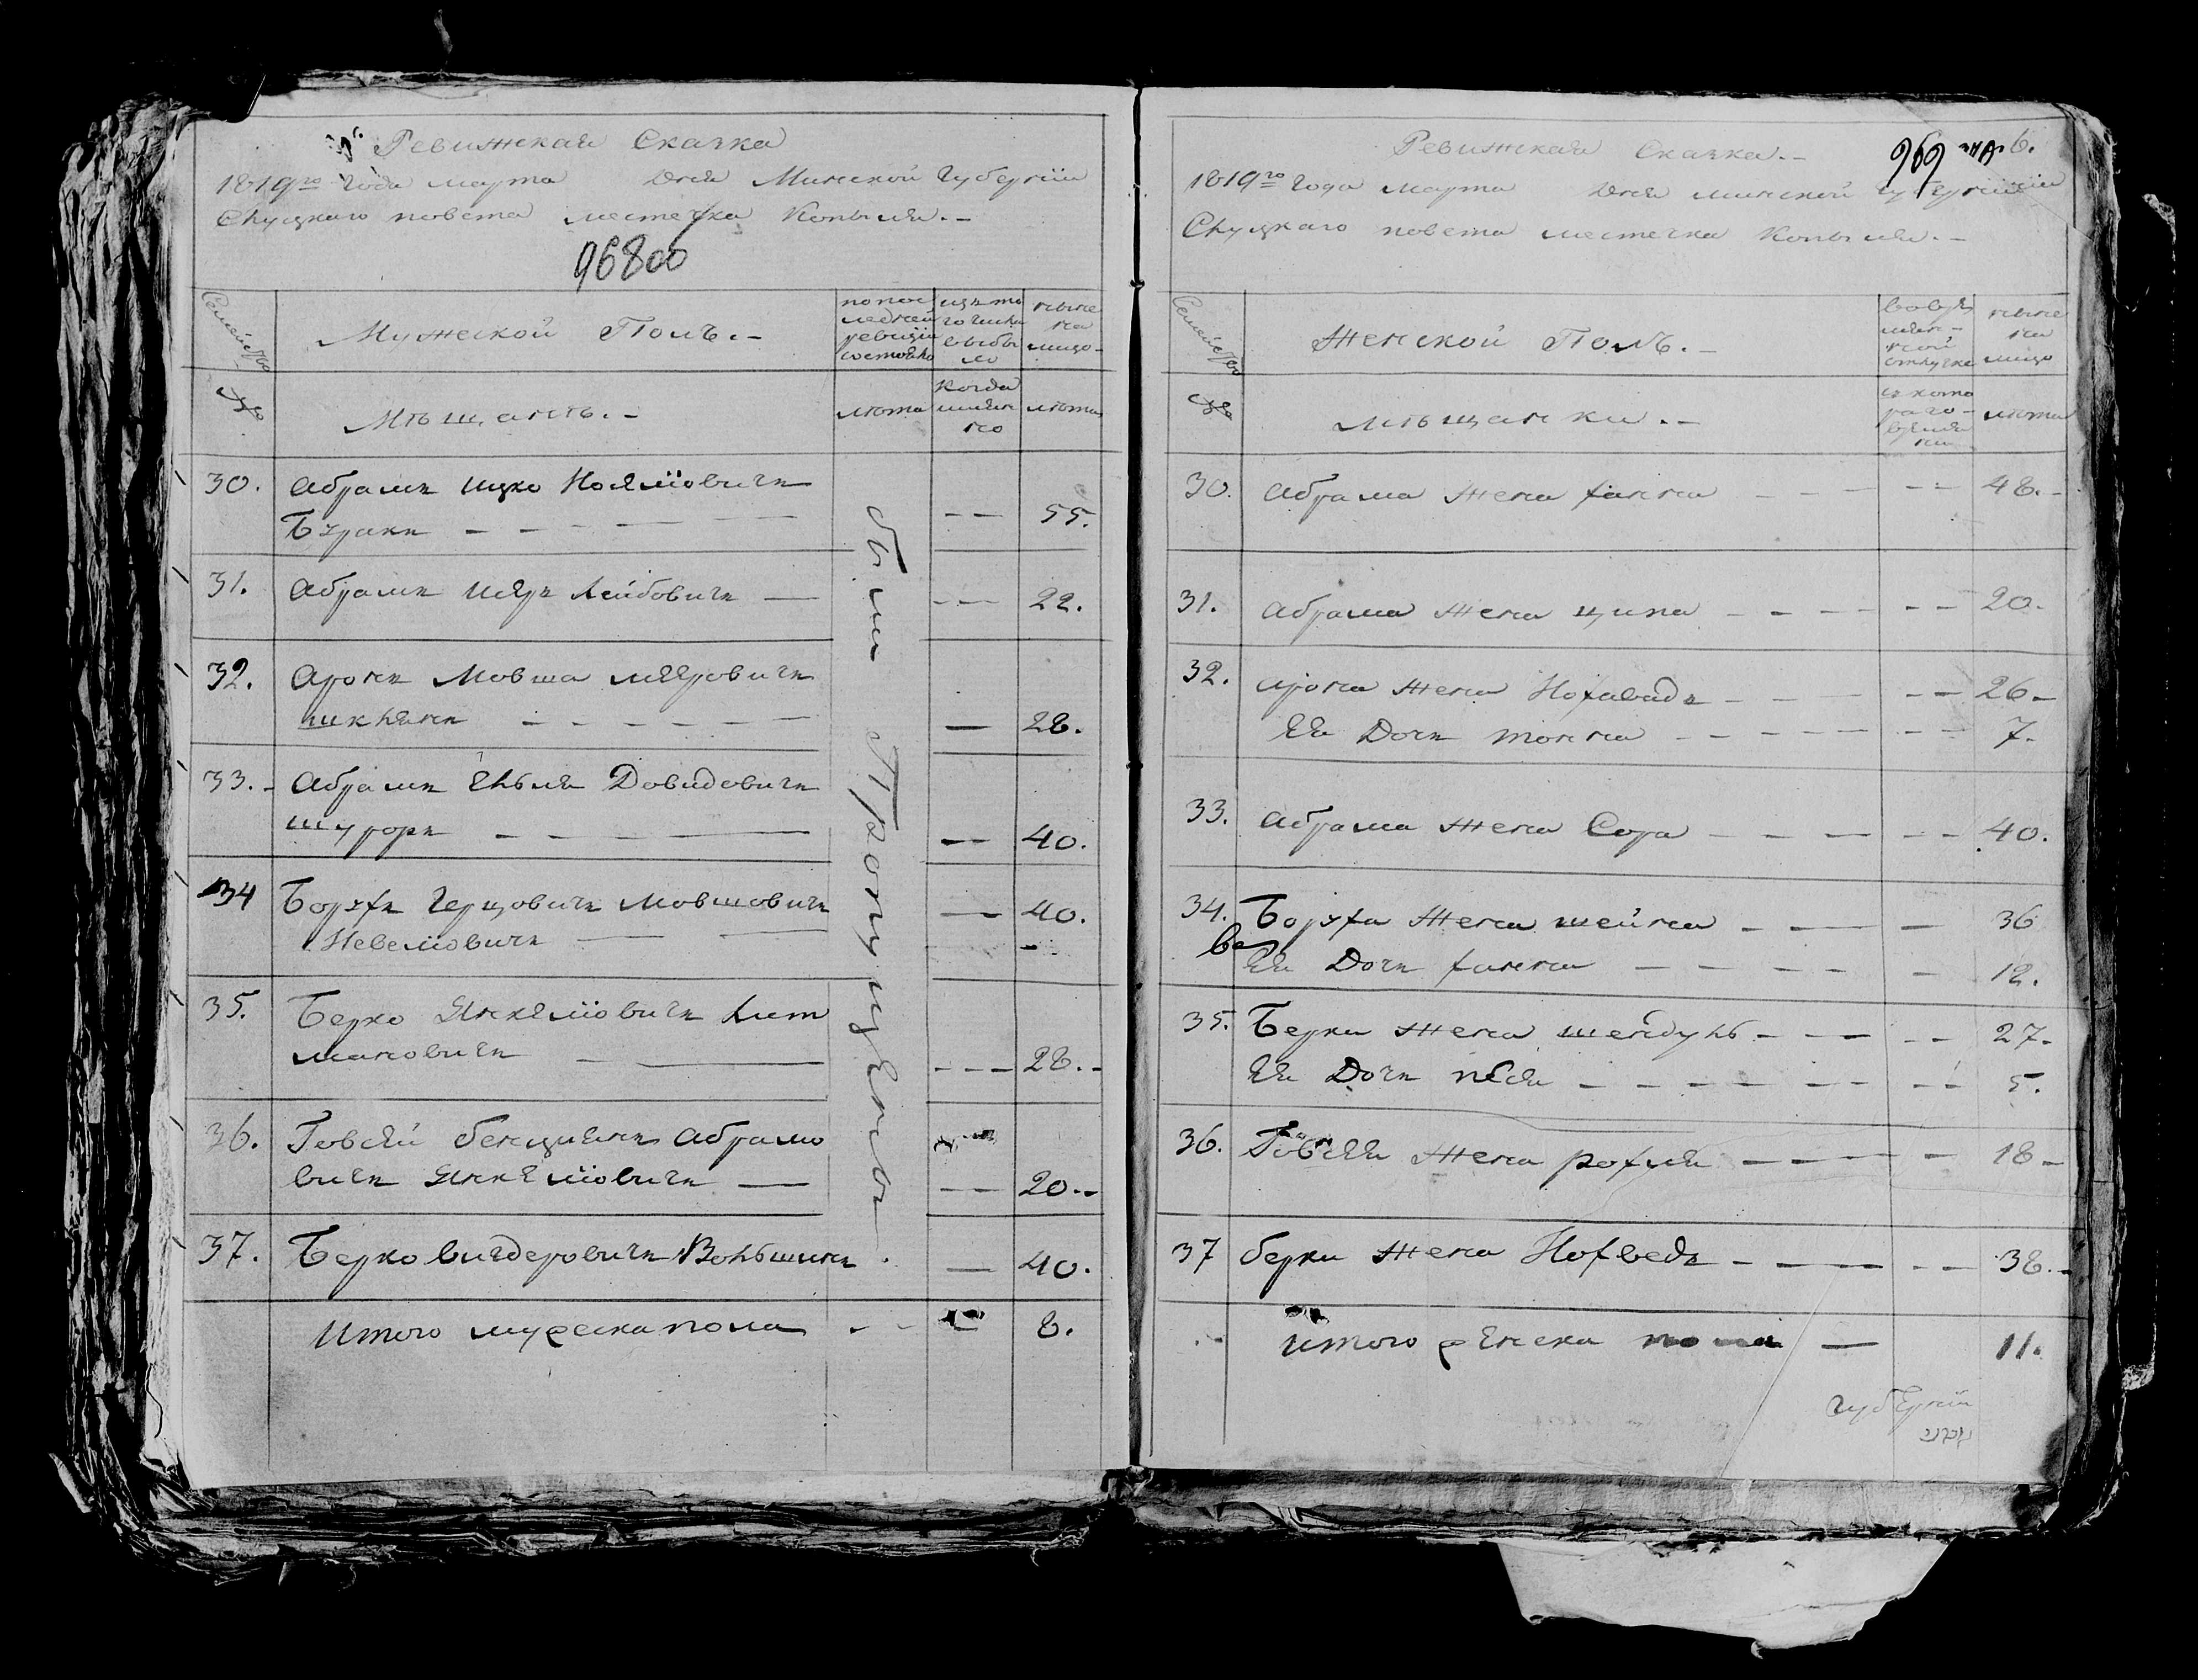 Ревижская Сказка
1819го года марта дня Минской губернiи
Слуцкаго повета местечка Копыля.-
968об
Семействo
Мужеской Полъ.-
по пос
ледней
ревизiи
состояло
изъ то
го числа
выбы
ло
ныне
на
лицо-
№
Мѣщанѣ.-
лѣта
когда
имян
но
лѣта
были Пропущены
30. Абрамъ Ицко Ноямiовичъ
Буракъ — — — 55.
31. Абрамъ Меэръ Лейбовичъ — — — 22.
32. Аронъ Мовша Мееровичъ
Шклянъ — — — 28.
33. Абрамъ Ельля Довидовичъ
шуфоръ — — — 40.
34 Борухъ Герцовичъ Мовшовичъ — 40.
Невемiовичъ
35. Берко Янкелiовичъ Лит
мановичъ — — — 28.
36. Говсей Бенцыянъ Абрамо
вичъ Янкелiовичъ — — — 20.
37. Берко Вигдеровичъ Вольшинъ — 40.
Итого мужеска пола — — 8.
Ревижская Сказка.-
969 6.
1819го года марта дня минской губернiи
Слуцкаго повета местечка Копыля.-
Семейство
Женской Полъ.-
во вре
мян-
ной
отлучке
ныне
на
лицо
№
мѣщанки.-
съ кото
раго-
время
ни
лѣта
30. Абрама жена ханна — — — 48.-
31. Абрама жена ципа — — — 20.
32. арона жена Нохавидъ — — — 26-
Ея Дочъ тонна — — — 7.
33. Абрама жена Сора — — — 40.
34. Боруха жена шейна — — — 36
Ея Дочъ ханна — — — 12.
35. Берки жена шендуль — — — 27.
Ея Дочъ песя — — — 5.
36. Говсея жена рохля — — — 18-
37 берки жена Нохведъ — — — 38.-
итого женска пола — 11.
губернiи